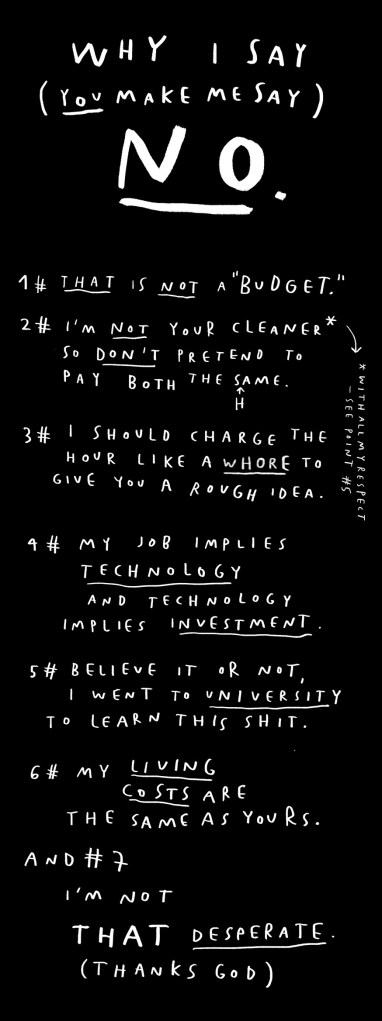 WHY I SAY
(YOU MAKE ME SAY)
NO.
1# THAT IS NOT A "BUDGET."
2# I'M NOT YOUR CLEANER*
SO DON'T PRETEND TO
PAY BOTH THE SAME.
↑
H
*WITH ALL MY RESPECT
- SEE POINT #5
3# I SHOULD CHARGE THE
HOUR LIKE A WHORE TO
GIVE YOU A ROUGH IDEA.
4# MY JOB IMPLIES
TECHNOLOGY
AND TECHNOLOGY
IMPLIES INVESTMENT.
5# BELIEVE IT OR NOT,
I WENT TO UNIVERSITY
TO LEARN THIS SHIT.
6# MY LIVING
COSTS ARE
THE SAME AS YOURS.
AND #7
I'M NOT
THAT DESPERATE.
(THANKS GOD)